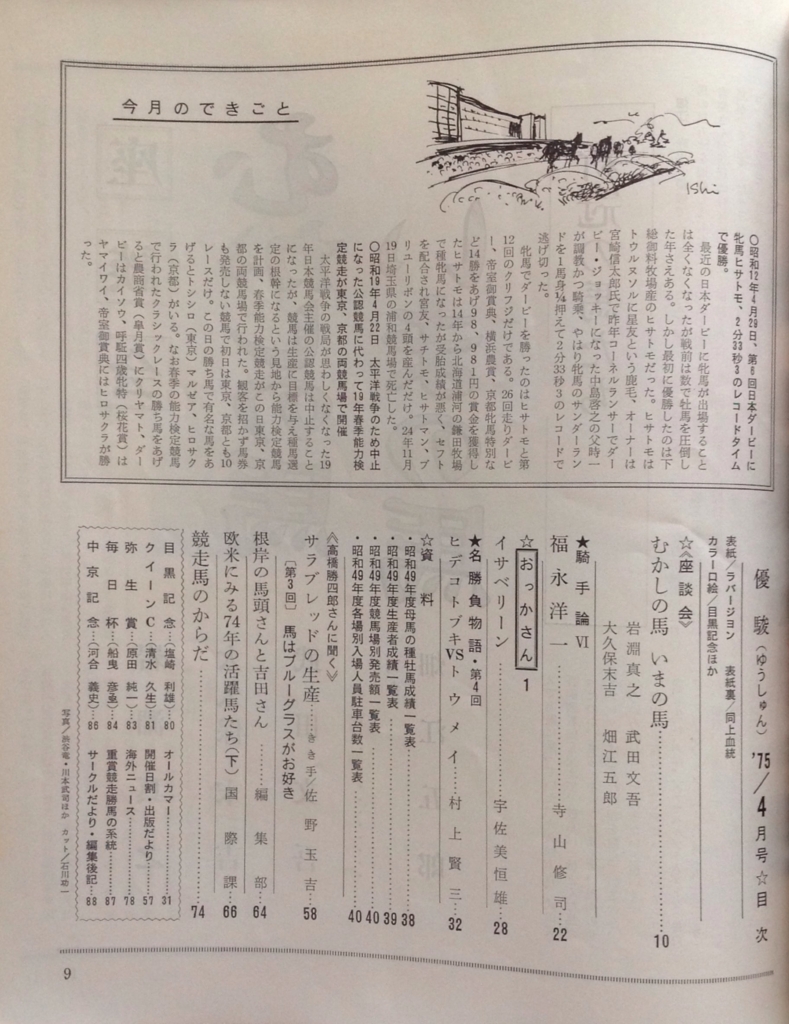 今月のできごと
Ishi
○昭和12年4月29日、第6回日本ダービーに
牝馬ヒサトモ、2分33秒3のレコードタイム
で優勝。
最近の日本ダービーに牝馬が出場すること
は全くなくなったが戦前は数で牡馬を圧倒し
た年さえある。しかし最初に優勝したのは下
総御料牧場産のヒサトモだった。ヒサトモは
トウルヌソルに星友という鹿毛、オーナーは
宮崎信太郎氏で昨年コーネルランサーでダー
ビー・ジョッキーになった中島啓之の父時一
が調教かつ騎乗、やはり牝馬のサンダーラン
ドを1馬身¼押えて2分33秒3のレコードで
逃げ切った。
牝馬でダービーを勝ったのはヒサトモと第
12回のクリフジだけである。26回走りダービ
ー、帝室御賞典、横浜農賞、京都牝馬特別な
ど14勝をあげ98、981円の賞金を獲得し
たヒサトモは14年から北海道浦河の鎌田牧場
で種牝馬になったが受胎成績が悪く、セフト
を配合され宮友、サチトモ、ヒサトマン、ブ
リューリボンの4頭を産んだだけ。24年11月
19日埼玉県の浦和競馬場で死亡した。
○昭和19年4月22日　太平洋戦争のため中止
になった公認競馬に代わって19年春季能力検
定競走が東京、京都の両競馬場で開催
太平洋戦争の戦局が思わしくなくなった19
年日本競馬会主催の公認競馬は中止すること
になったが、競馬は生産に目標を与え種馬選
定の根幹になるという見地から能力検定競馬
を計画、春季能力検定競走がこの日東京、京
都の両競馬場で行われた。観客を招かず馬券
も発売しない競馬で初日は東京、京都とも10
レースだけ。この日の勝ち馬で有名な馬をあ
げるとトシシロ（東京）マルゼア、ヒロサク
ラ（京都）がいる。なお春季の能力検定競馬
で行われたクラシックレースの勝ち馬をあげ
ると農商省賞（皐月賞）にクリヤマト、ダー
ビーはカイソウ、呼馬四歳牝特（桜花賞）は
ヤマイワイ、帝室御賞典にはヒロサクラが勝
った。
優駿（ゆうしゅん）'75／4月号☆目次
表紙／ラバージョン　表紙裏／同上血統
カラー口絵／目黒記念ほか
☆《座談会》
むかしの馬 いまの馬……10
岩淵真之　武田文吾
大久保末吉　畑江五郎
★騎手論Ⅵ
福永洋一……寺山修司…22
☆おっかさん1
イサベリーン……宇佐美恒雄…28
★名勝負物語・第4回
ヒデコトブキVSトウメイ……村上賢三…32
☆資料
・昭和49年度母馬の種牡馬成績一覧表……38
・昭和49年度生産者成績一覧表……39
・昭和49年度競馬場別発売額一覧表……40
・昭和49年度各場別入場人員駐車台数一覧表……40
《高橋勝四郎さんに聞く》
サラブレッドの生産……きき手／佐野玉吉…58
〔第3回〕馬はブルーグラスがお好き
根岸の馬頭さんと吉田さん……編集部…64
欧米にみる74年の活躍馬たち（下）国際課…66
競走馬のからだ……74
目黒記念……（塩崎利雄）…80　オールカマー……31
クイーンC……（清水久生）…81　開催日割・出版だより……57
弥生賞……（原田純一）…83　海外ニュース……78
毎日杯……（船曳彦）…84　重賞競走勝馬の系統……87
中京記念……（河合義史）…86　サークルだより・編集後記……88
写真／渋谷竜・川本武司ほか　カット／石川功一
9